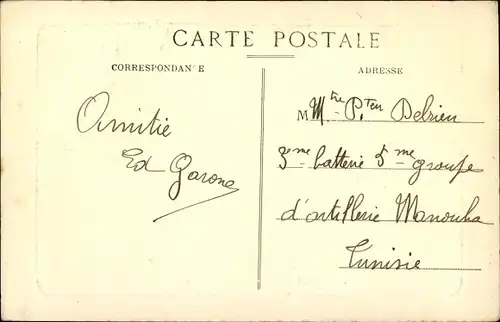 CARTE POSTALE
CORRESPONDANCE
ADRESSE
Amitié
Ed Garone
M Mtre P.ten Delrieu
3eme batterie 5me groupe
d'artillerie Manouba
Tunisie